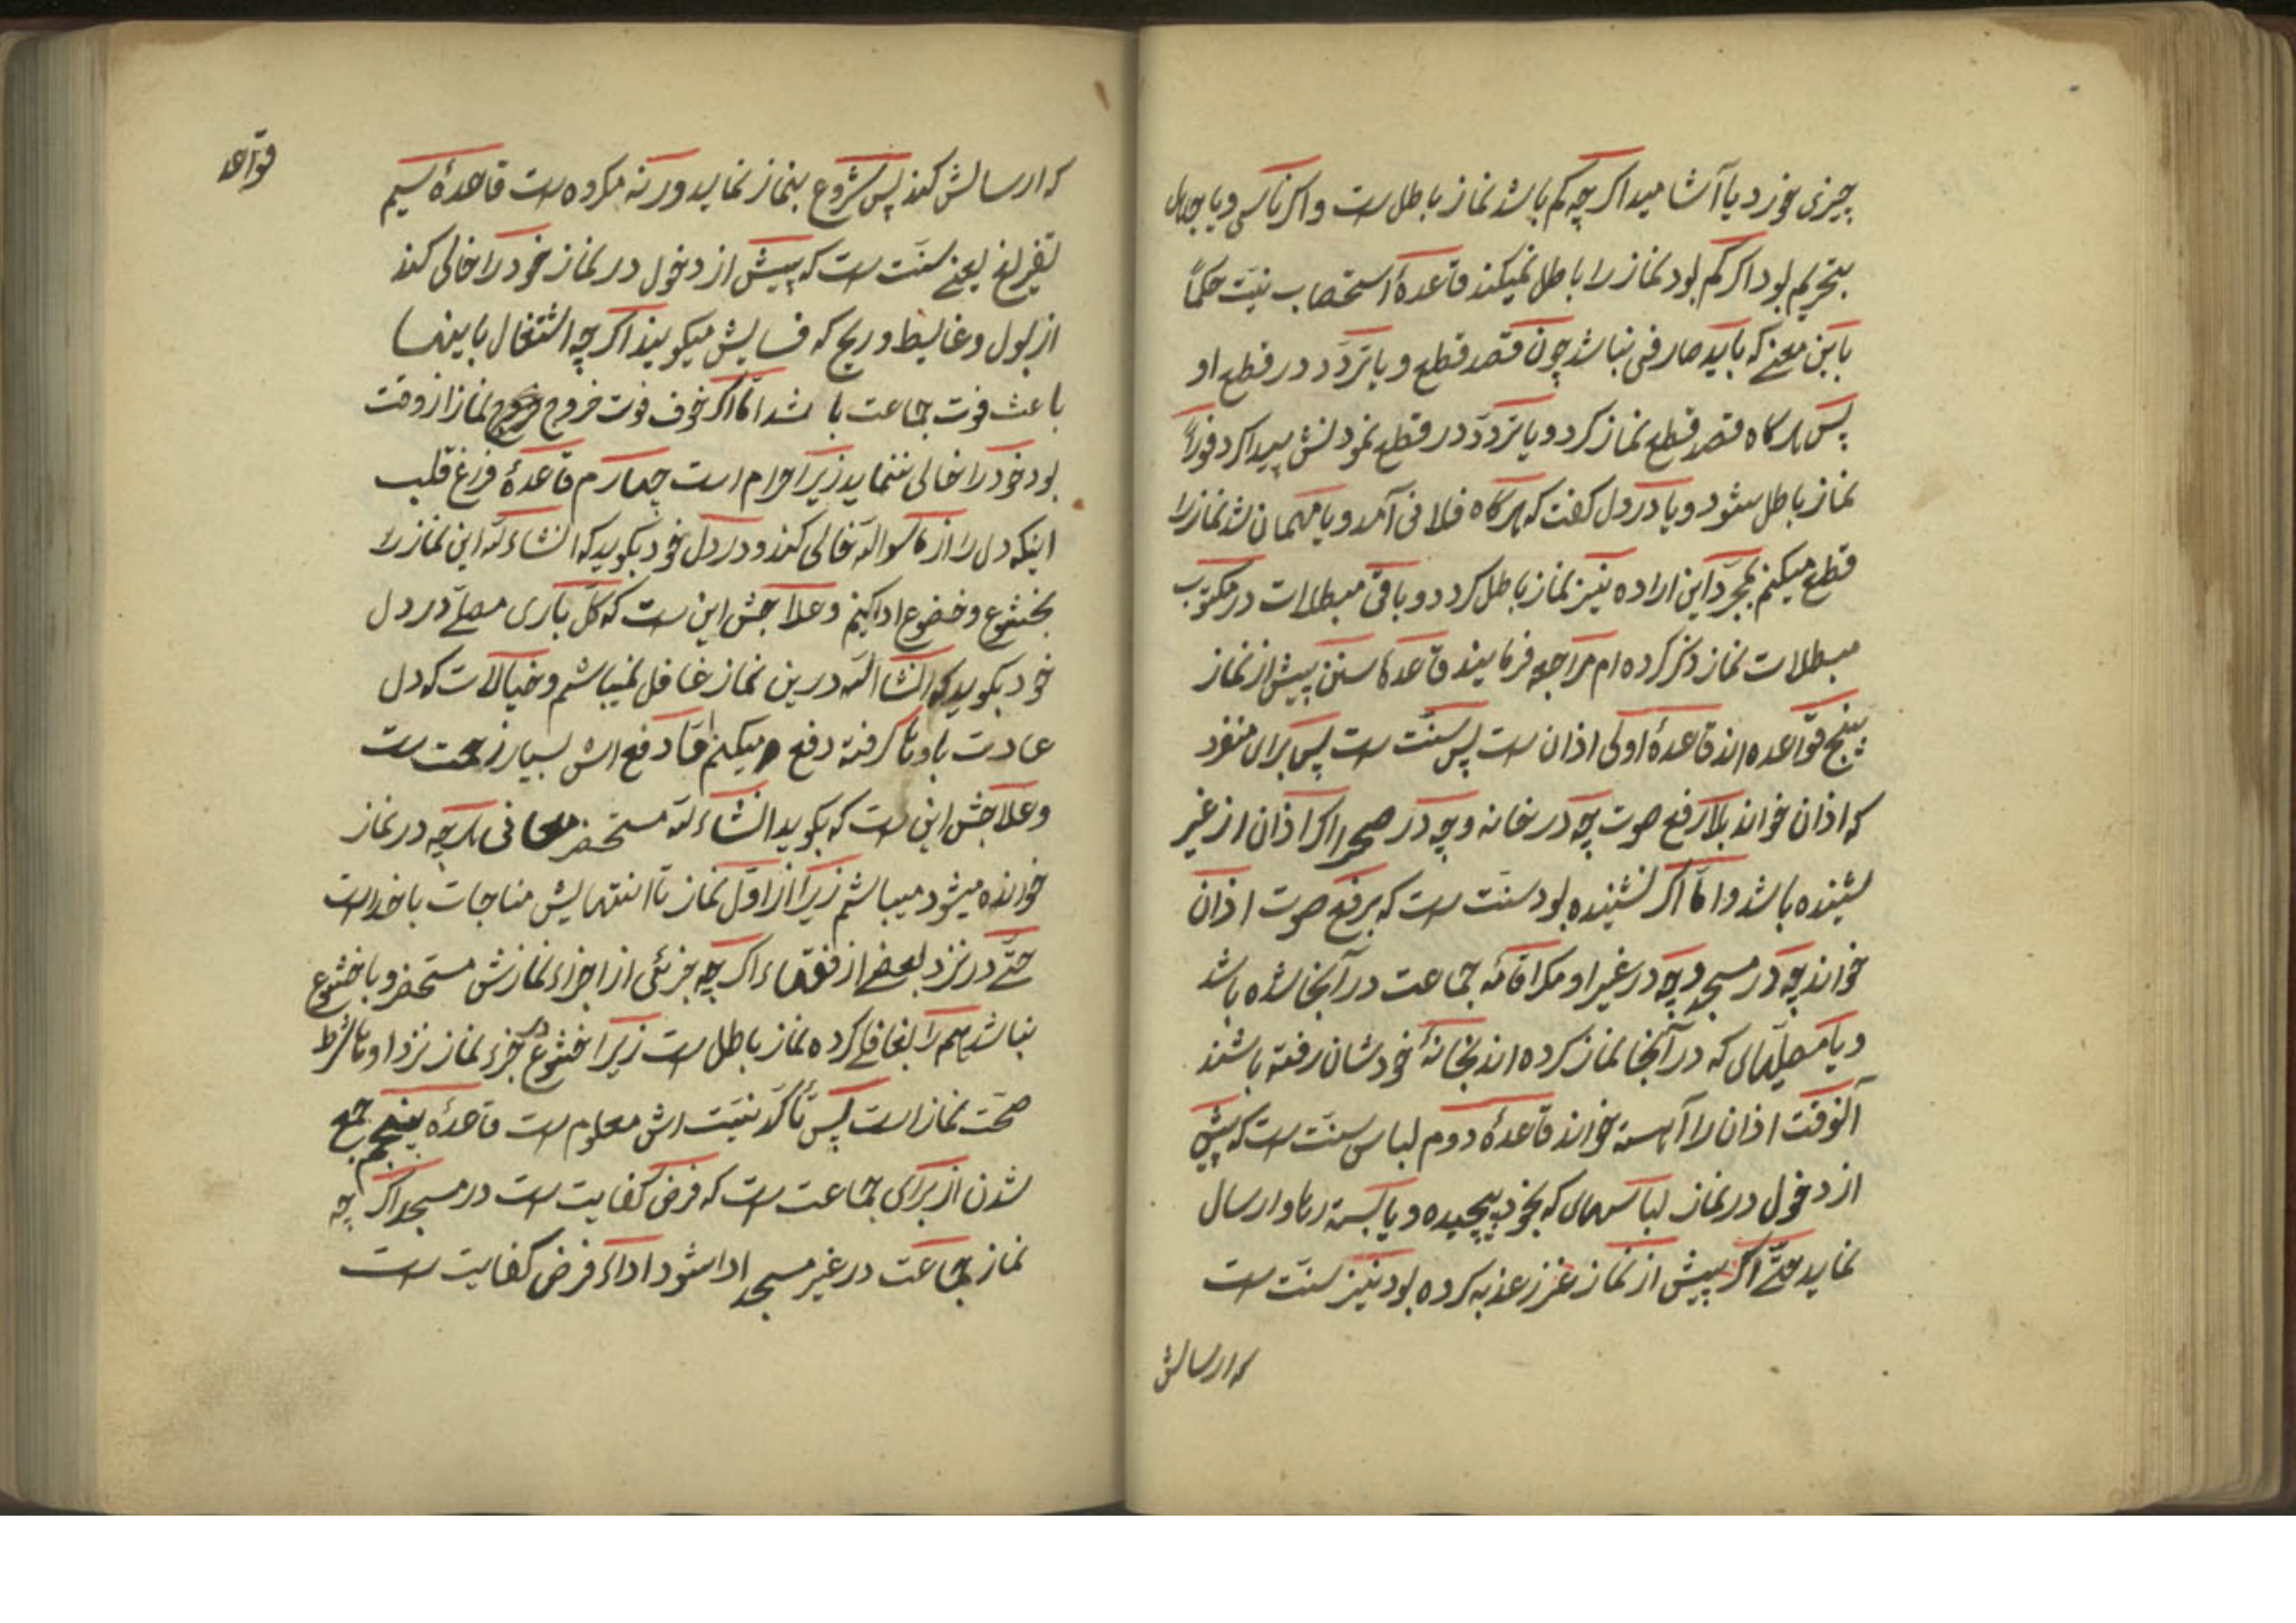 چیزی خورد یا آشامید اکر چه کم باشد نماز باطل است و اکر ناسی و یا جاهل
بتحریم بود اکر کم بود نماز را باطل نمیکند قاعدهٔ استصحاب نیت حکماً
باین معنے که باید صارفی نباشد چون قصد قطع و یا تردّد در قطع او
پس هرکاه قصد قطع نماز کرد و یا تردّد در قطع نمودنش پیدا کرد فوراً
نماز باطل میشود و یا در دل کفت که هرکاه فلانی آمد و یا مهمان شد نماز را
قطع میکنم بمجرّد این اراده نیز نماز باطل کردد و باقی مبطلات در مکتوب
مبطلات نماز ذکر کرده ام مراجعه فرمایند قاعدهٔ سنن پیش از نماز
پنج قواعده اند قاعدهٔ اولی اذان است پس سنّت است پس برای منفرد
که اذان خواند بلا رفع صوت چه در خانه و چه در صحرا اکر اذان از غیر
شنیده باشد و امّا اکر نشنیده بود سنّت است که برفع صوت اذان
خواند چه در مسجد و چه در غیر او مکر اقامهٔ جماعت در آنجا شده باشد
و یا مصلّیهای که در آنجا نماز کرده اند بخانهٔ خودشان رفته باشند
آنوقت اذان را آهسته خواند قاعدهٔ دوم لباس سنّت است که پیش
از دخول در نماز لباسهای که بخود پیچیده و یا بسته رها و ارسال
نماید حتّے اکر پیش از نماز غرز عذبه کرده بود نیز سنّت است
که ارسالش
که ارسالش کند پس شروع بنماز نماید ورنه مکروه است قاعدهٔ سیم
تفریغ یعنے سنّت است که پیش از دخول در نماز خود را خالی کند
از بول و غایط و ریح که فسایش میکویند اکر چه اشتغال باینها
باعث فوت جماعت باشد امّا اکر خوف فوت خروج نماز از وقت
بود خود را خالی ننماید زیرا حرام است چهارم قاعدهٔ فراغ قلب
اینکه دل را از ماسوالله خالی کند و در دل خود بکوید که انشاءالله این نماز را
بخشوع و خضوع ادا کنم و علاجش این است که کل باری مصلّے در دل
خود بکوید که انشاالله درین نماز غافل نمیباشم و خیالات که دل
عادت باوها کرفته دفع میکنم امّا دفع اش بسیار زحمت است
و علاجش این است که بکوید انشاءالله مستحضر معانی هرچه در نماز
خوانده میشود میباشم زیرا از اوّل نماز تا انتهایش مناجات با خداست
حتّے در نزد بعضے از فقهاء اکر چه جزئی از اجزاء نمازش مستحضر و با خشوع
نباشد هم را بغافلے کرده نماز باطل است زیرا خشوع در جزء نماز نزد اوها شرط
صحّت نماز است پس تأکّد نیّت اش معلوم است قاعدهٔ پنجم جمع
شدن از برای جماعت است که فرض کفایت است در مسجد اکر چه
نماز جماعت در غیر مسجد ادا شود اداء فرض کفایت است
قواعد